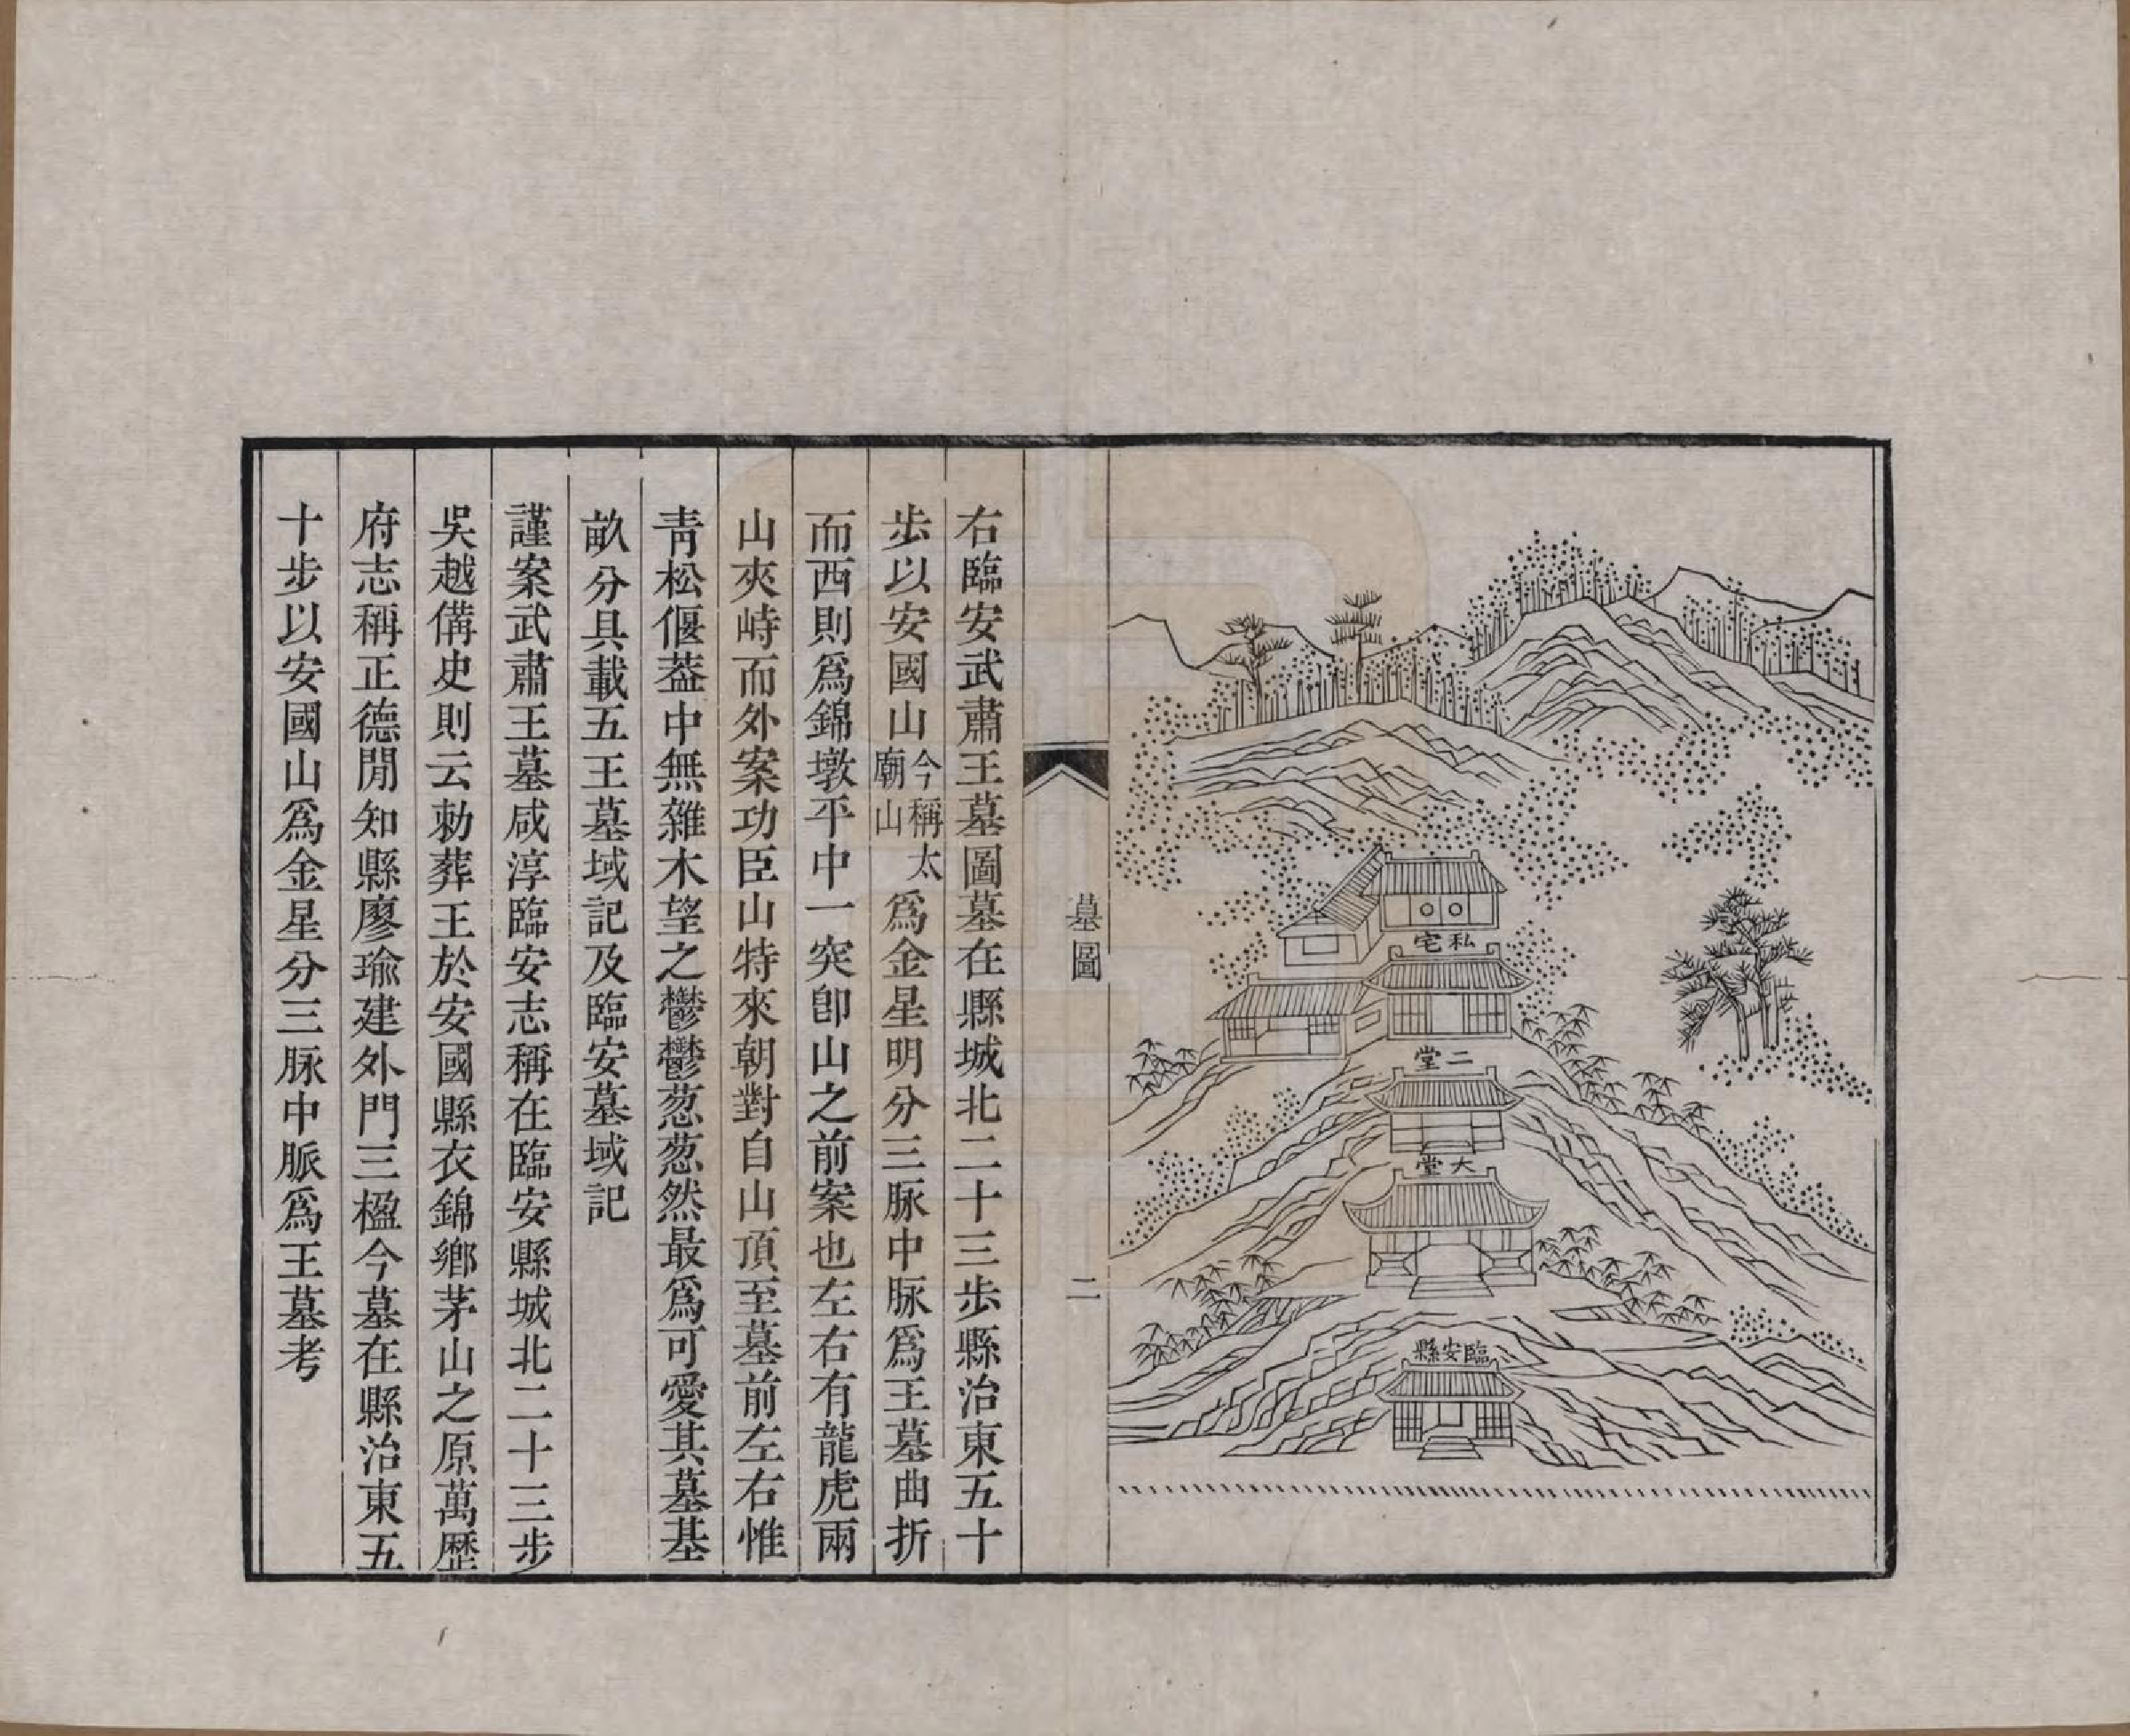 私宅
二堂
大堂
臨安縣
墓圖
二
右臨安武肅王墓圖墓在縣城北二十三步縣治東五十
步以安國山今稱太廟山爲金星明分三脉中脉爲王墓曲折
而西則爲錦墩平中一突卽山之前案也左右有龍虎兩
山夾峙而外案功臣山特來朝對自山頂至墓前左右惟
靑松偃葢中無雜木望之鬱鬱葱葱然最爲可愛其墓基
畝分具載五王墓域記及臨安墓域記
謹案武肅王墓咸淳臨安志稱在臨安縣城北二十三步
吳越備史則云勅葬王於安國縣衣錦鄉茅山之原萬歷
府志稱正德閒知縣廖瑜建外門三楹今墓在縣治東五
十步以安國山爲金星分三脉中脈爲王墓考